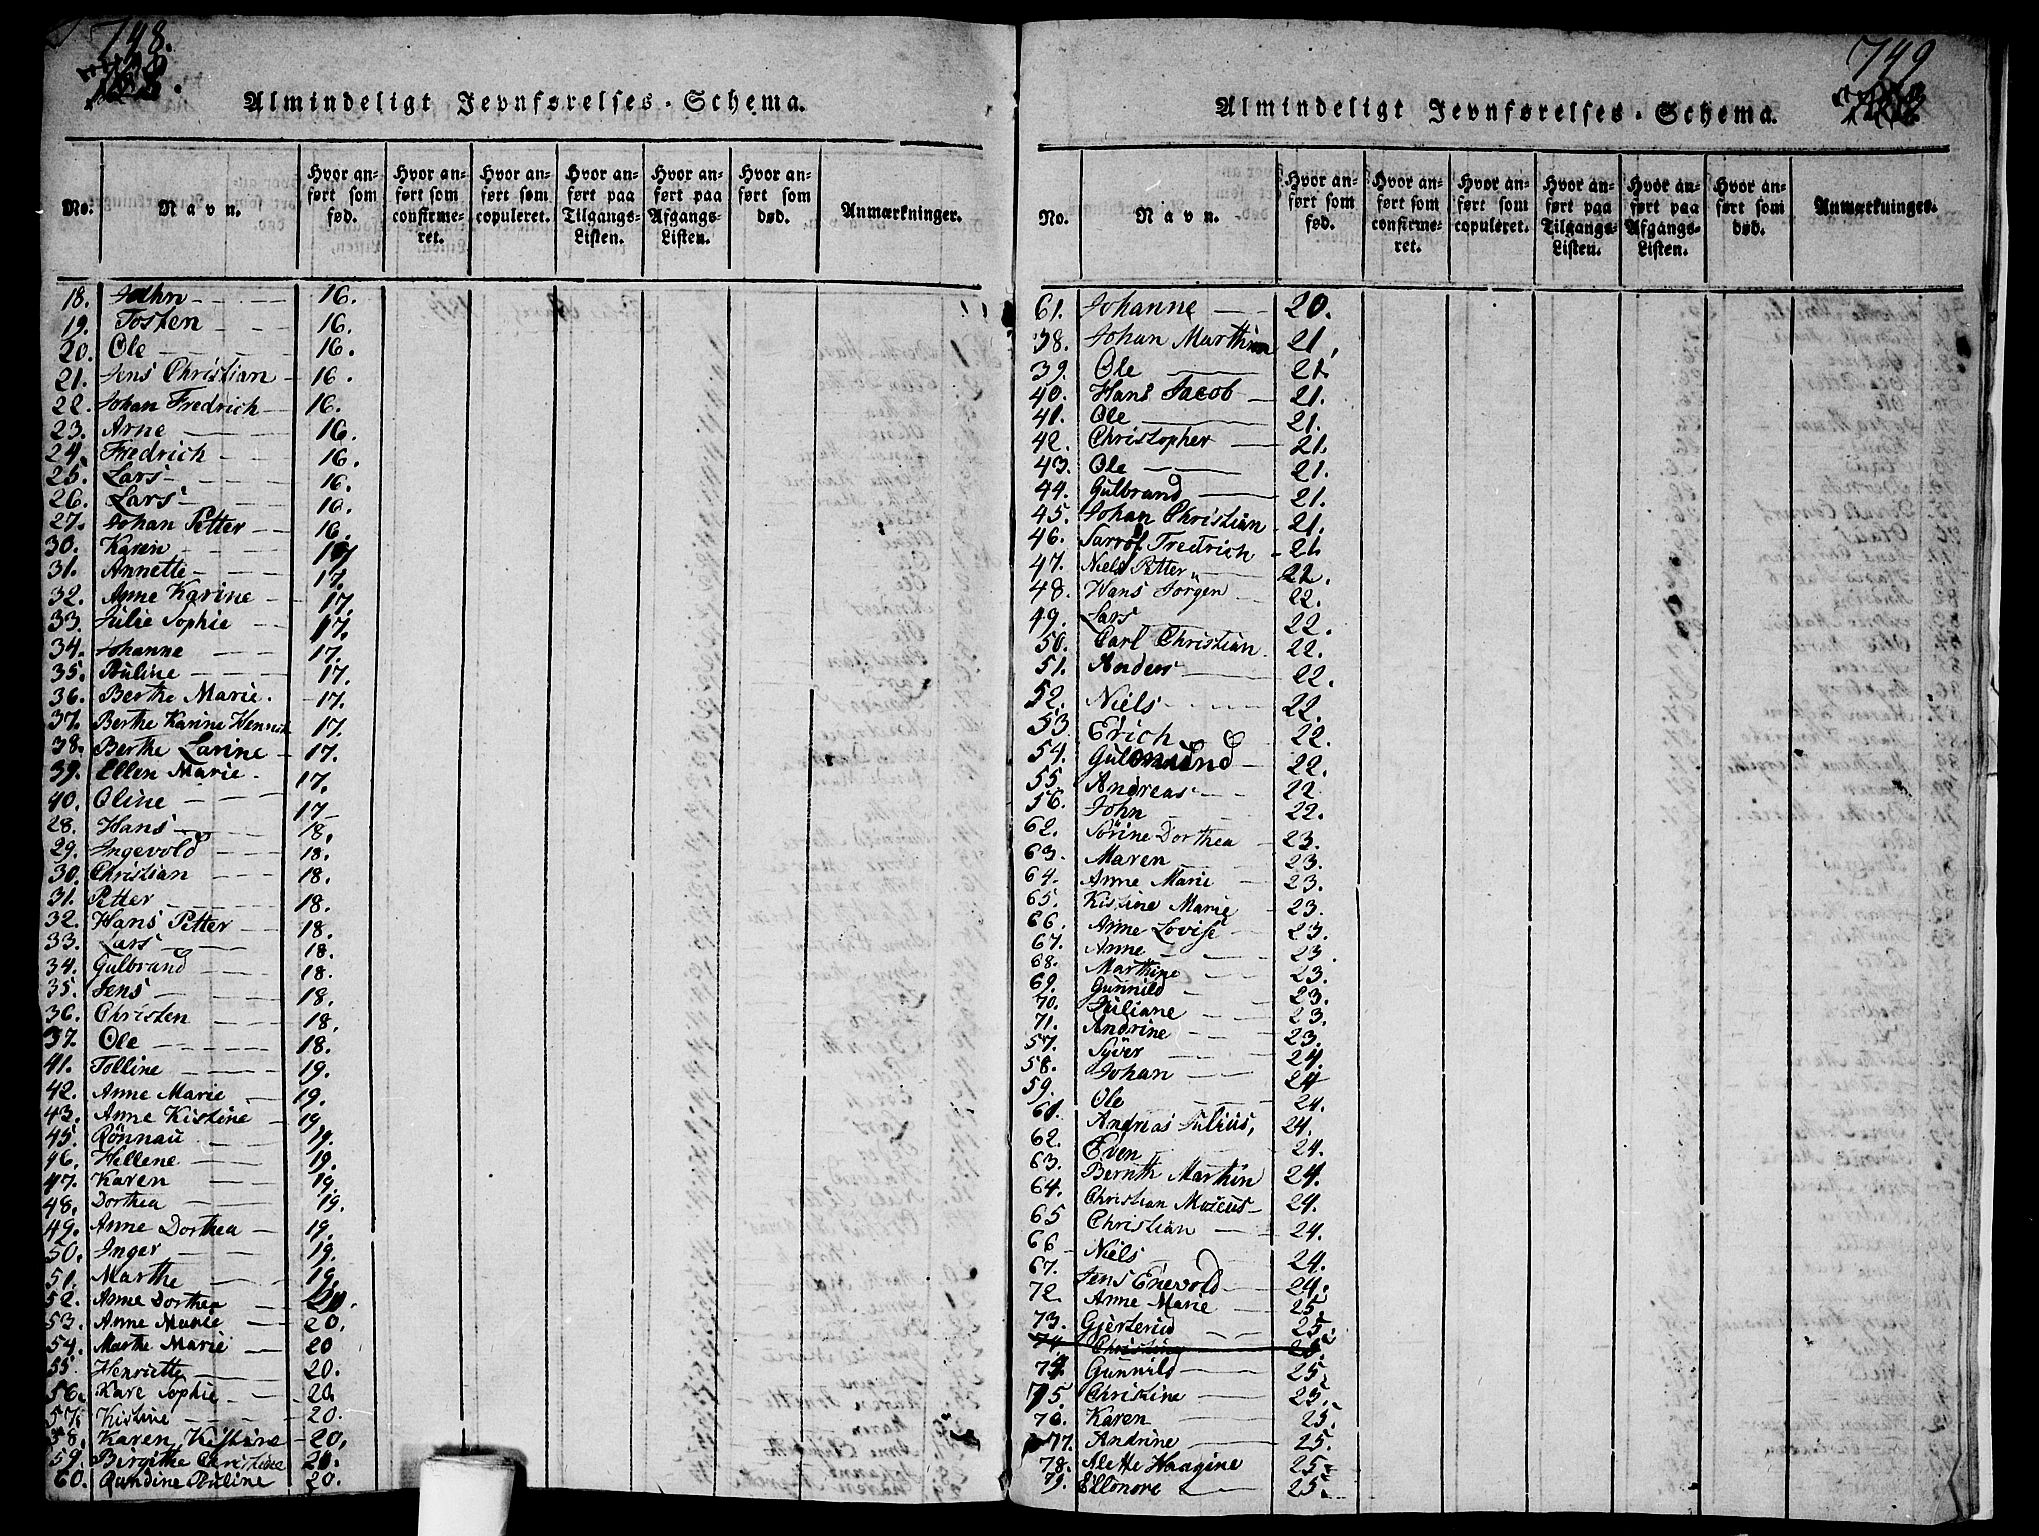 748.
Almindeligt Jevnførelses-Schema.
No. Navn. Hvor anført som fød. Hvor anført som confirmeret. Hvor anført som copuleret. Hvor anført paa Tilgangs-Listen. Hvor anført paa Afgangs-Listen. Hvor anført som død. Anmærkninger.
18. Jathn 16.
19. Tosten 16.
20. Ole 16.
21. Jens Christian 16.
22. Johan Fredrich 16.
23. Arne 16.
24. Fredrich 16.
25. Lars 16.
26. Lars 16.
27. Johan Petter 16.
30. Karen 17
31. Annette 17.
32. Anne Karine 17.
33. Julie Sophie 17.
34. Johanne 17.
35. Pauline 17.
36. Berthe Marie. 17.
37. Berthe Karine Henrich 17.
38. Berthe Larine 17.
39. Ellen Marie. 17.
40. Oline 17
28. Hans 18.
29. Ingevold 18.
30. Christian 18.
31. Petter 18.
32. Hans Petter 18.
33. Lars 18.
34. Gulbrand 18.
35. Jens 18.
36. Christen 18.
37. Ole 18.
41. Tolline 19.
42. Anne Marie 19.
43. Anne Kistine 19.
45. Rönnau 19.
46. Hellene 19.
47. Karen 19.
48. Dorthea 19.
49. Anne Dorthea 19.
50. Inger 19.
51. Marthe 19.
52. Anne Dorthea 20.
53. Anne Marie 20.
54. Marthe Marie 20
55. Henriette 20.
56. Kare Sophie 20.
57. Kistine 20.
58. Karen Kistine 20.
59. Birgithe Christine 20.
60. Randine Pauline 20.
749
Almindeligt Jevnførelses-Schema.
No. Navn. Hvor anført som fød. Hvor anført som confirmeret. Hvor anført som copuleret. Hvor anført paa Tilgangs-Listen. Hvor anført paa Afgangs-Listen. Hvor anført som død. Anmærkninger.
61. Johanne 20.
38. Johan Marthin 21.
39. Ole 21.
40. Hans Jacob 21.
41. Ole 21.
42. Christopher 21.
43. Ole 21.
44. Gulbrand 21.
45. Johan Christian 21.
46. Fredrich 21
47. Niels Petter 22.
48. Hans Jörgen 22.
49. Lars 22.
50. Carl Christian 22.
51. Anders 22.
52. Niels 22.
53 Erich 22.
54. Gulmund 22.
55. Andreas 22
56. John 22.
62. Sörine Dorthea 23.
63. Maren 23.
64. Anne Marie 23.
65. Kistine Marie 23.
66. Anne Lovise 23.
67. Anne 23.
68. Marthine 23.
69. Gunnild 23.
70. Juliane 23.
71. Andrine 23.
57. Syver 24.
58. Johan 24
59. Ole 24.
61. Andreas Julius, 24.
62. Even 24.
63. Bernth Marthin 24.
64. Christian Marcus 24.
65 Christian 24.
66 Niels 24.
67. Jens Enevold 24.
72. Anne Marie 25
73. Gjerterud 25.
74 Christine 25.
74. Gunnild 25.
75. Christine 25.
76. Karen 25.
77. Andrine 25.
78. Alette Haagine 25.
79. Ellonore 25.